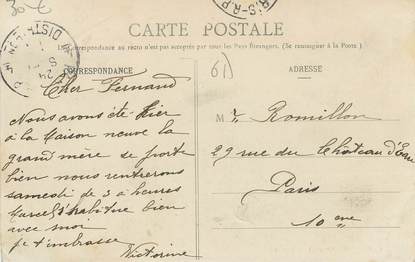 30 €
CARTE POSTALE
La Correspondance au recto n'est pas acceptée par tous les Pays étrangers. (Se renseigner à la Poste.)
CORRESPONDANCE
Cher Fernand
Nous avons été hier
à la Maison neuve la
grand mère se porte
bien nous rentrerons
samedi de 3 a heures
Marcel s'habitue bien
avec moi
je t'embrasse
Victorine
61
ADRESSE
M. r Romillon
29 rue du Château d'Eau
Paris
10 eme